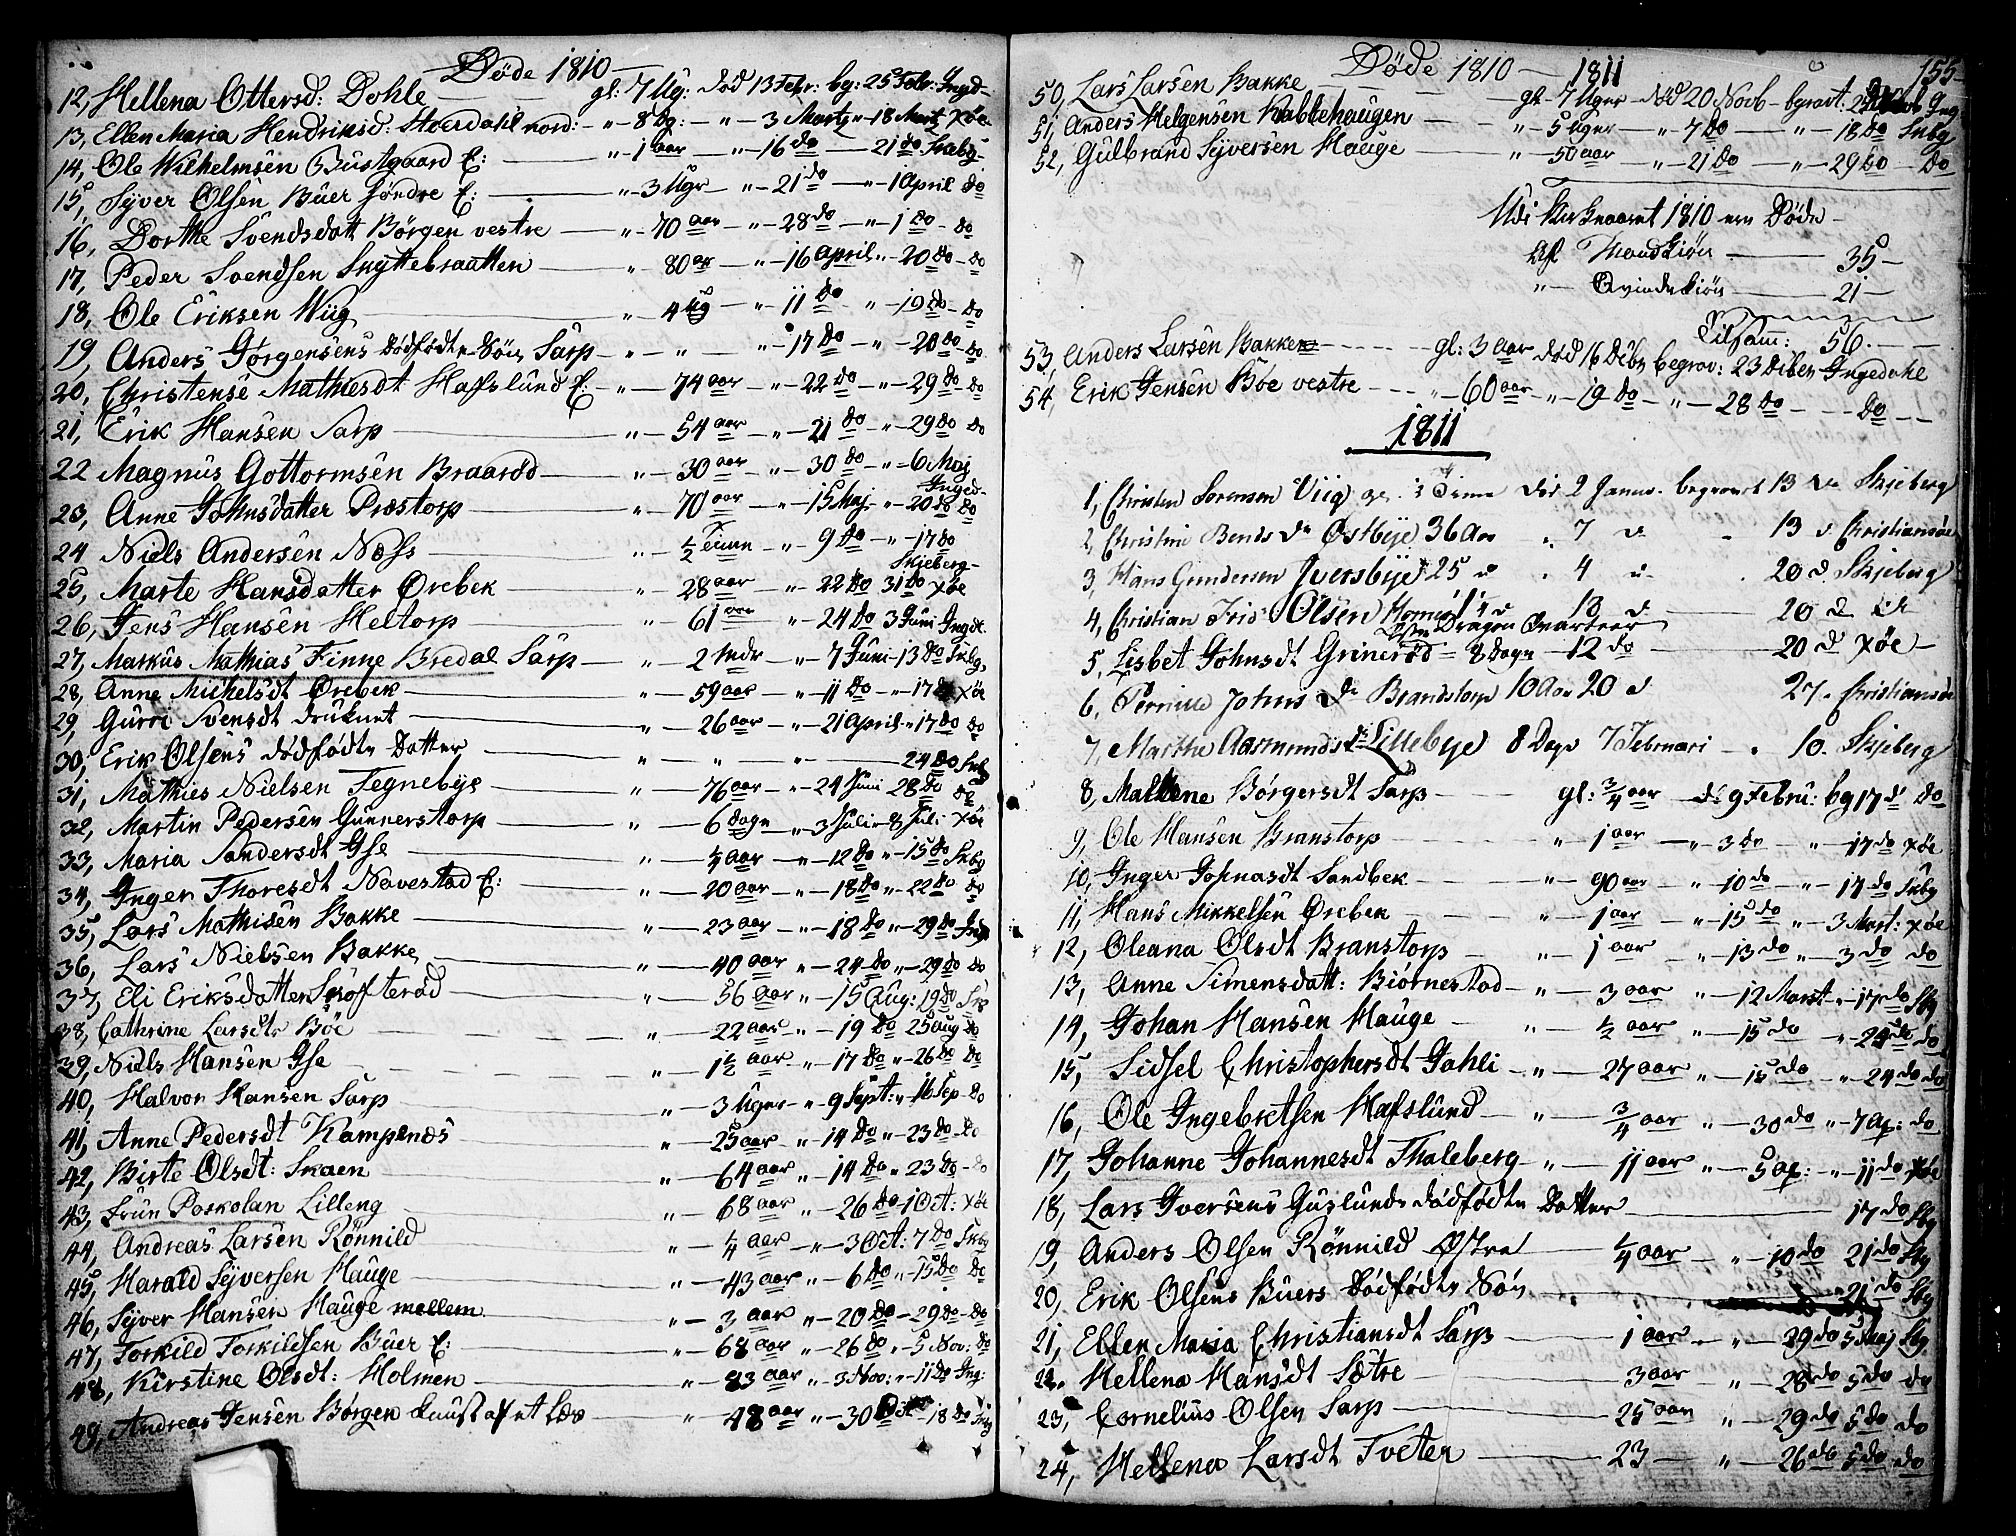 Døde 1810
12, Hellena Ottersd: Dohle gl: 7 Ug: død 13 Febr: bg: 25 Febr: Ingd-
13, Ellen Maria Hendriksd: nord: " 8 " 3 Martz " 18 Martz Xöe
14, Ole Wilhelmsen Bustgaard E: " 1 aar " 16 do 21 do Skbg-
15, Syver Olsen Büer søndre E: " 3 Ugr " 21 do " 1 April do
16, Dorthe Svendsdatt Børgen vestre " 70 aar " 28 do " 1 do do
17, Peder Svendsen Snyttebraatten " 80 ar " 16 April " 20 do do
18, Ole Eriksen Wiig " 4 Ug " 11 do " 19 do do
19, Anders Jørgensens dødfødte Søn Sarp " " " 17 do " 20 do do
20, Christense Mathiesdt Hafslund E: " 74 aar " 22 do " 29 do do
21, Erik Hansen Sarp " 54 aar " 21 do " 29 do do
22 Magnus Gottormsen Braarød " 30 aar " 30 do " 6 Maj Inged-
23, Anne Johnsdatter Præstorp " 70 aar " 15 Maj " 20 do do
24 Niels Andersen Næss " ½ Time " 9 do " 17 do
25, Marte Hansdatter Ørebek " 28 aar " 22 do 31 do Xöe
Skjeberg-
26, Jens Hansen Heltorp " 61 aar " 24 do 3 Juni Ingd.
27, Markus Mathias Finne Bredal Sarp " 2 " 7 Juni 13 do Skbg,
28, Anne Michelsdt Ørebek " 59 aar " 11 do " 17 do Xöe
29, Gurri Svensdt druknet " 26 aar " 21 April " 17 do do
30, Erik Olsens dødfødte Datter " " 24 do Skb
31, Mathies Nielsen Tegnebye " 76 aar " 24 Juni 28 do do
32, Martin Pedersen Gunnerstorp " 6 dage " 3 Juli 8 Juli Xöe
33, Maria Sandersdt Ise " ¼ aar " 12 do " 15 do Skbg
34, Inger Thoresdt Navestad E: " 20 aar " 18 do " 22 do do
35, Lars Mathisen Bakke " 23 aar " 18 do " 29 do
36, Lars Nielsen Bakke " 40 aar " 24 do " 29 do do
37, Eli Eriksdatter Skofterød " 56 aar " 15 Aug: 19 do
38, Cathrine Larsdtr Bøe " 22 aar " 19 do 25 Aug do
39, Niels Hansen Ise " 1½ aar " 17 do " 26 do do
40, Halvor Hansen Sarp " 3 Uger " 9 Sept: " 16 Sep do
41, Anne Pedersdt Kampenæs " 25 aar " 14 do " 23 do do
42, Birte Olsdt: Skaen " 64 aar " 14 do " 23 do do
43, Poskolan Lilleng " 68 aar " 26 do " 1 Oct: Xöe
44, Andreas Larsen Rønnild " ¼ aar " 3 Oct: 7 do Skbg
45, Harald Syversen Hauge " 43 aar " 6 do " 15 do do
46, Syver Hansen Hauge mellem " 3 aar " 20 do 29 do do
47, Torkild Torkildsen Büer E: " 68 aar " 26 do " 5 Nov: do
48, Kirstine Olsdt: Holmen " 83 aar " 3 Nov: " 11 do Ing:
49, Andreas Jensen Børgen " 48 aar " 30 18 do
Døde 1810 — 1811
155
50, Lars Larsen Bakke gl: 7 Uger død 20 Novb begravt: 25 Ing
51, Anders Helgensen Kabbehaugen " 5 Uger " 7 do " 18 do Skbg
52, Gulbrand Syversen Hauge " 50 aar " 21 do " 29 do do
Udi Kirkeaaret 1810 ere Døde
Af Mandkiøn 35
" Qvindekiøn 21
Tilsam: 56.
53, Anders Larsen Bakke gl: 3 aar død 16 Debr begrav: 23 Debr Ingedahl
54, Erik Jensen Bøe vestre " 60 aar " 19 do " 28 do do
1811
1, Christen Sorensen Viig Time død 2 Janu. begravet 13 do Skjeberg
2, Christine Bends dr Østbye 36 Aar " 7 d " 13 d Christiansöe
3, Hans Gundersen Iversbye 25 " 4 20 d. Skjeberg
4, Christian Olsen 13 d 20 d
Dragon Qvarteer
5, Lisbet Johnsdt Grinerød 8 dage 12 do 20 d Xöe
6, Pernille Johns dr Brandstorp 10 Aar 20 d 27 " Christiansöe
7, Marthe Aasmunds dr Lillebye 8 Dage 7 Februari " 10. Skjeberg
8, Mallene Børgersdt Sarp gl: ¾ aar d: 9 Febru: bg 17 d do
9, Ole Hansen Branstorp " 1 aar " 3 do " 17 do Xöe
10, Inger Johnasdt Sandbek " 90 aar " 10 do " 17 do Skbg
11, Hans Mikkelsen Ørebek " 1 aar " 15 do " 3 Mart: Xöe
12, Oleana Olsdt Branstorp " 1 aar " 13 do " 3 do do
13, Anne Simensdatt: Biørnestad " 3 aar " 12 Marst " 17 do Sbg
14, Johan Hansen Hauge " ½ aar " 15 do " 24 do do
15, Sidsel Christophersdt Gahli " 27 aar " 18 do " 24 do do
16, Ole Ingebretsen Hafslund " ¾ aar " 30 do " 7 Ap: do
17, Johanne Johannesdt Thaleberg " 11 aar " 5 Ap: " 11 do Xöe
18, Lars Iversens Guslunds dødfødte Datter 17 do Sbg
19, Anders Olsen Rønnild Østre ¼ aar " 10 do 21 do Sbg
20, Erik Olsens Büers dødfødte Søn " 21 do Sbg
21, Ellen Maria Christiansdt Sarp 1 aar " 29 do 5 Maj Sbg
22. Hellena Hansdt Sætre 3 aar " 28 do 5 do do
23, Cornelius Olsen Sarp 25 aar " 29 do 5 do do
24, Hellena Larsdt Tveter 23 " 26 do 5 do do